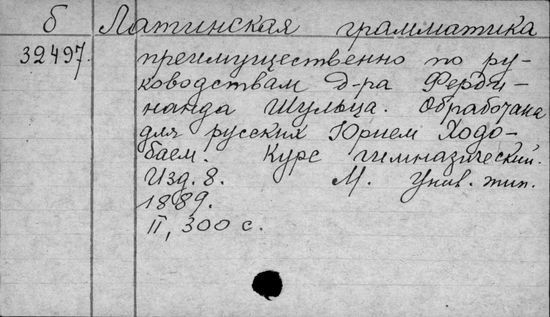 б Латинская грамматика
32497. преимущественно по ру-
ководствам д-ра Ферди-
нанда Шульца. Обработана
для русских Юрием Ходо-
баем. Курс гимназический.
Изд. 8. М. Унив. тип.
1889.
II, 300 с.